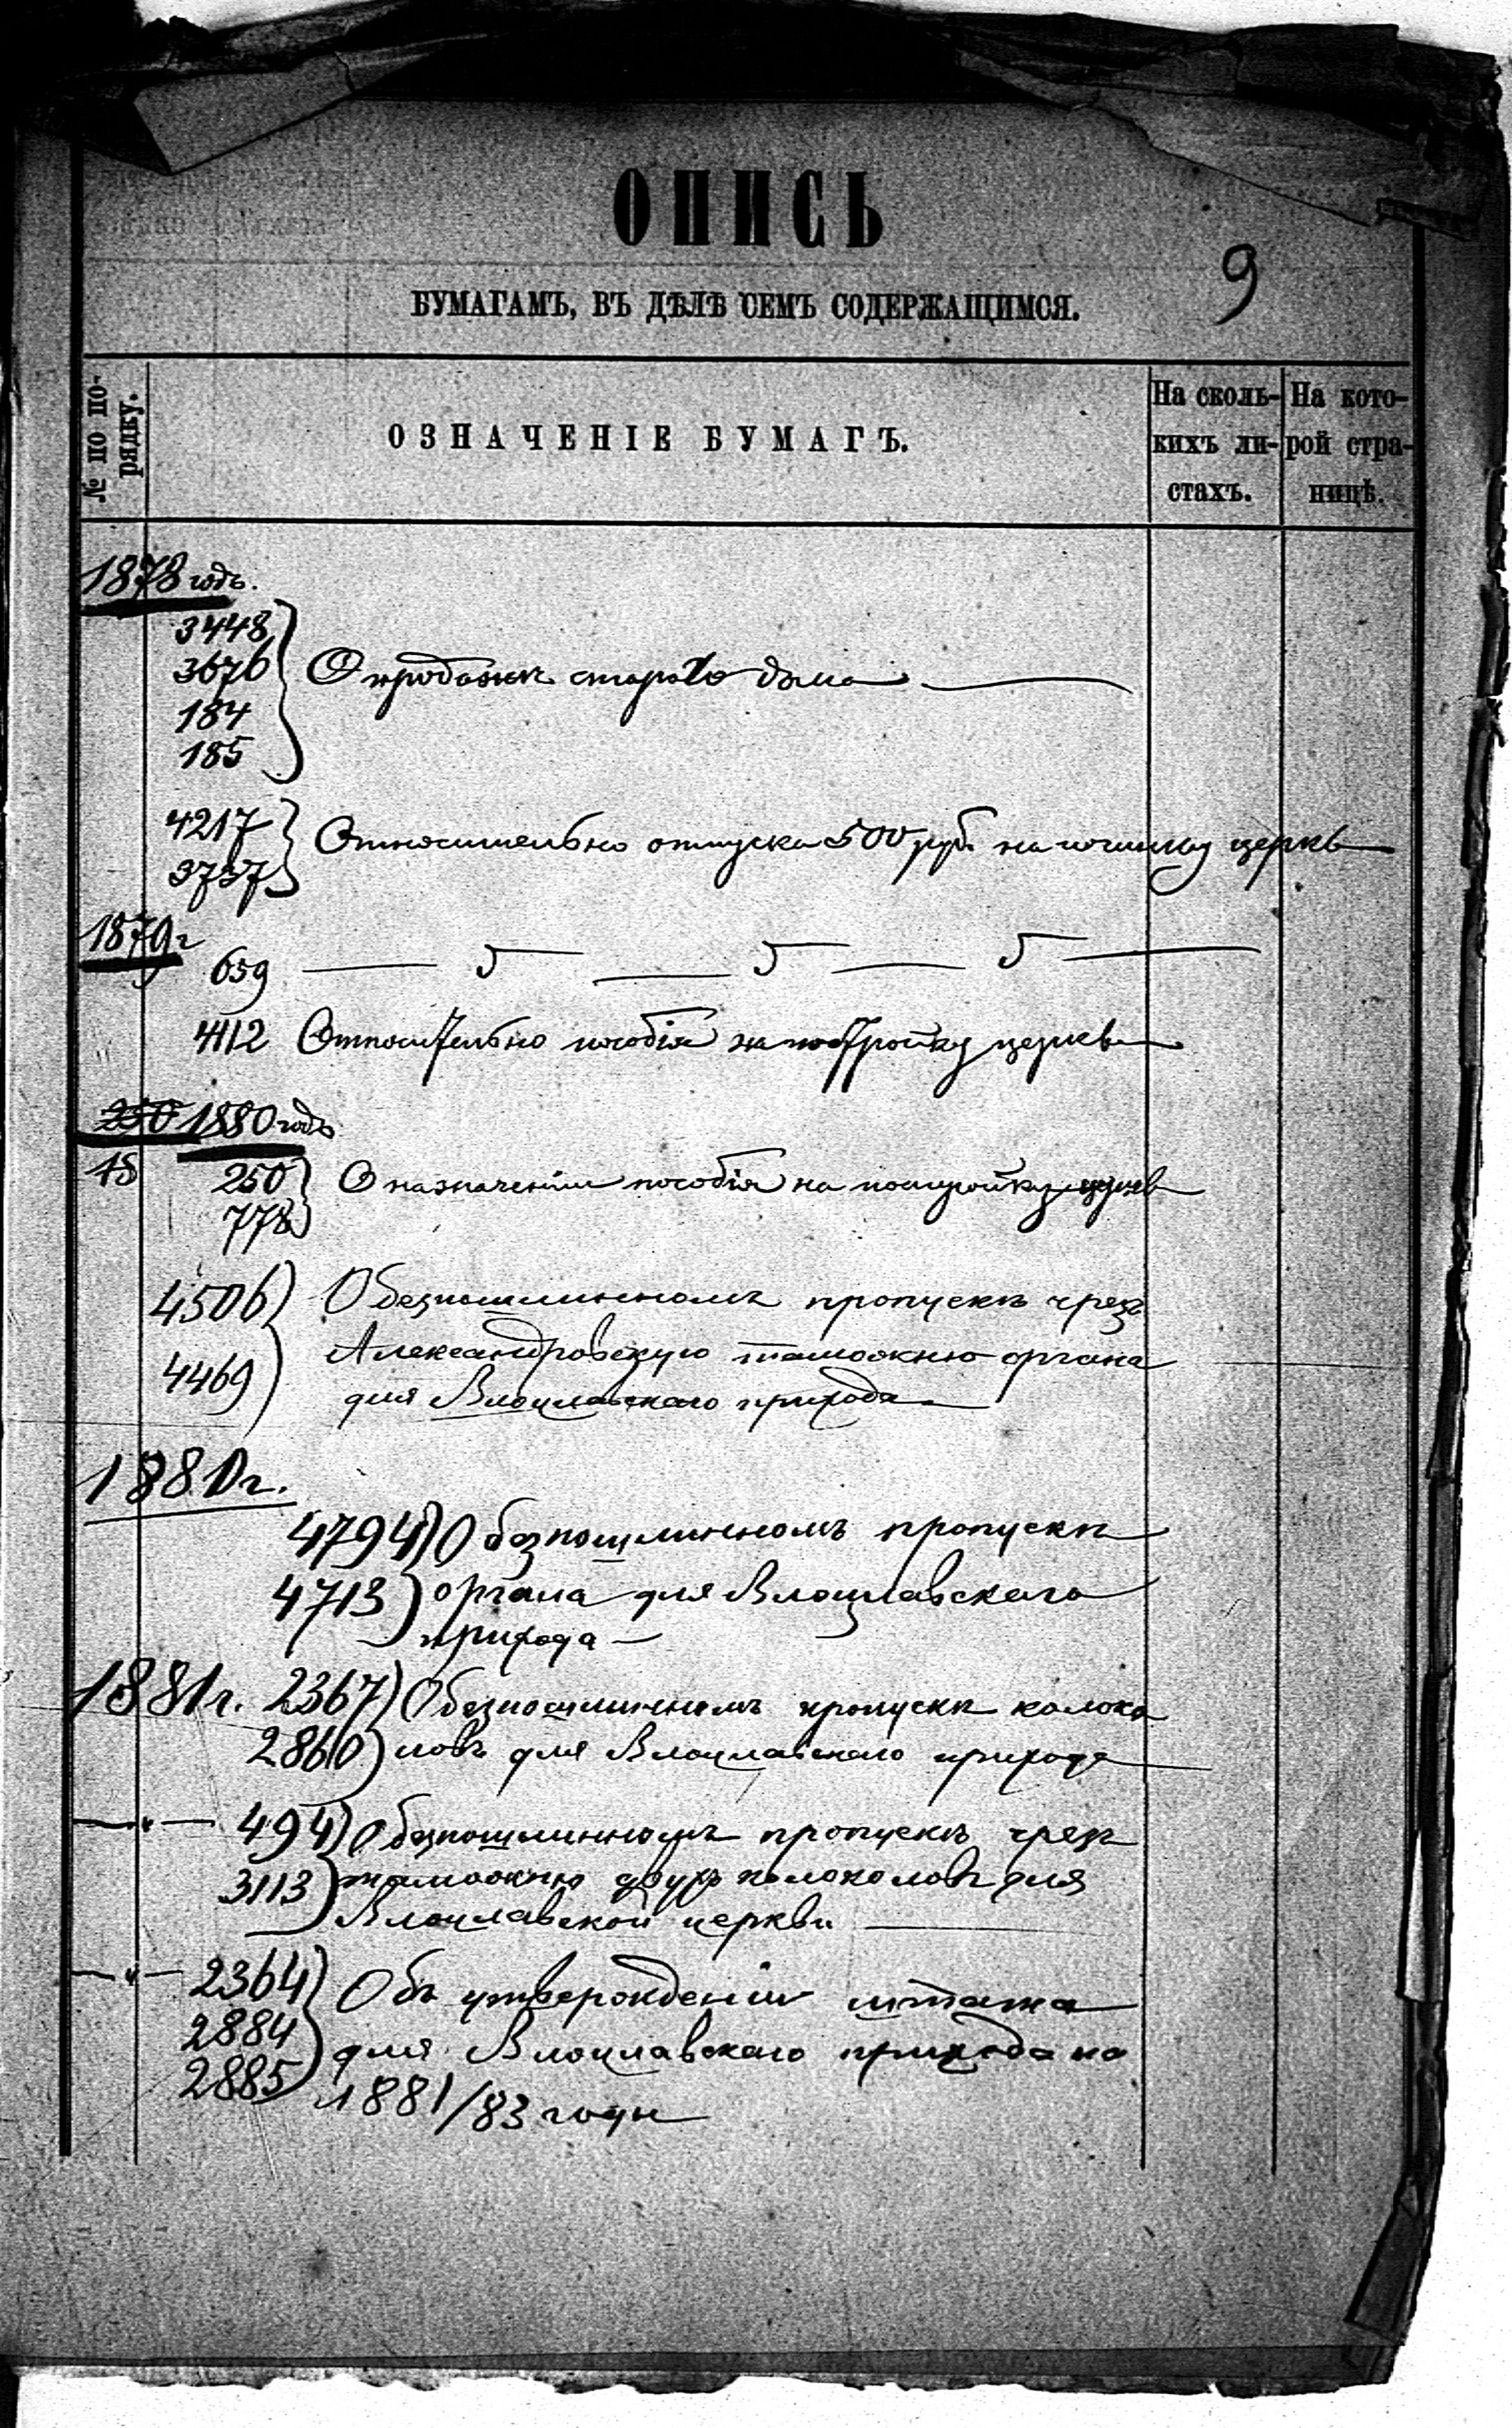 ОПИСЬ
9
БУМАГАМЪ, ВЪ ДѢЛѢ СЕМЪ СОДЕРЖАЩИМСЯ.
№ по по-
рядку.
ОЗНАЧЕНІЕ БУМАГЪ.
На сколь-
кихъ ли-
стахъ.
На кото-
рой стра-
ницѣ.
1878 годъ.
3448
3676 О продажѣ стараго дома
184
185
4217 Относительно отпуска 500 руб. на починку церкв
3737
1879 г
659
4112 Относительно пособія на постройку церкв
250 1880 годъ
15
250 О назначеніи пособія на постройку церкв
778
4506 О безпошлинномъ пропускѣ чрезъ
Александровскую таможню органа
4469 для Влоцлавскаго прихода
1880 г.
4794 О безпошлинномъ пропускѣ
4713 органа для Влоцлавскаго
прихода
1881 г. 2367 О безпошлинномъ пропускѣ колоко
2860 ловъ для Влоцлавскаго прихода
— " — 494 О безпошлинномъ пропускѣ чрезъ
3113 таможню двухъ колоколовъ для
Влоцлавской церкви
— " — 2364 Объ утвержденіи штата
2884 для Влоцлавскаго прихода на
2885 1881/83 годы